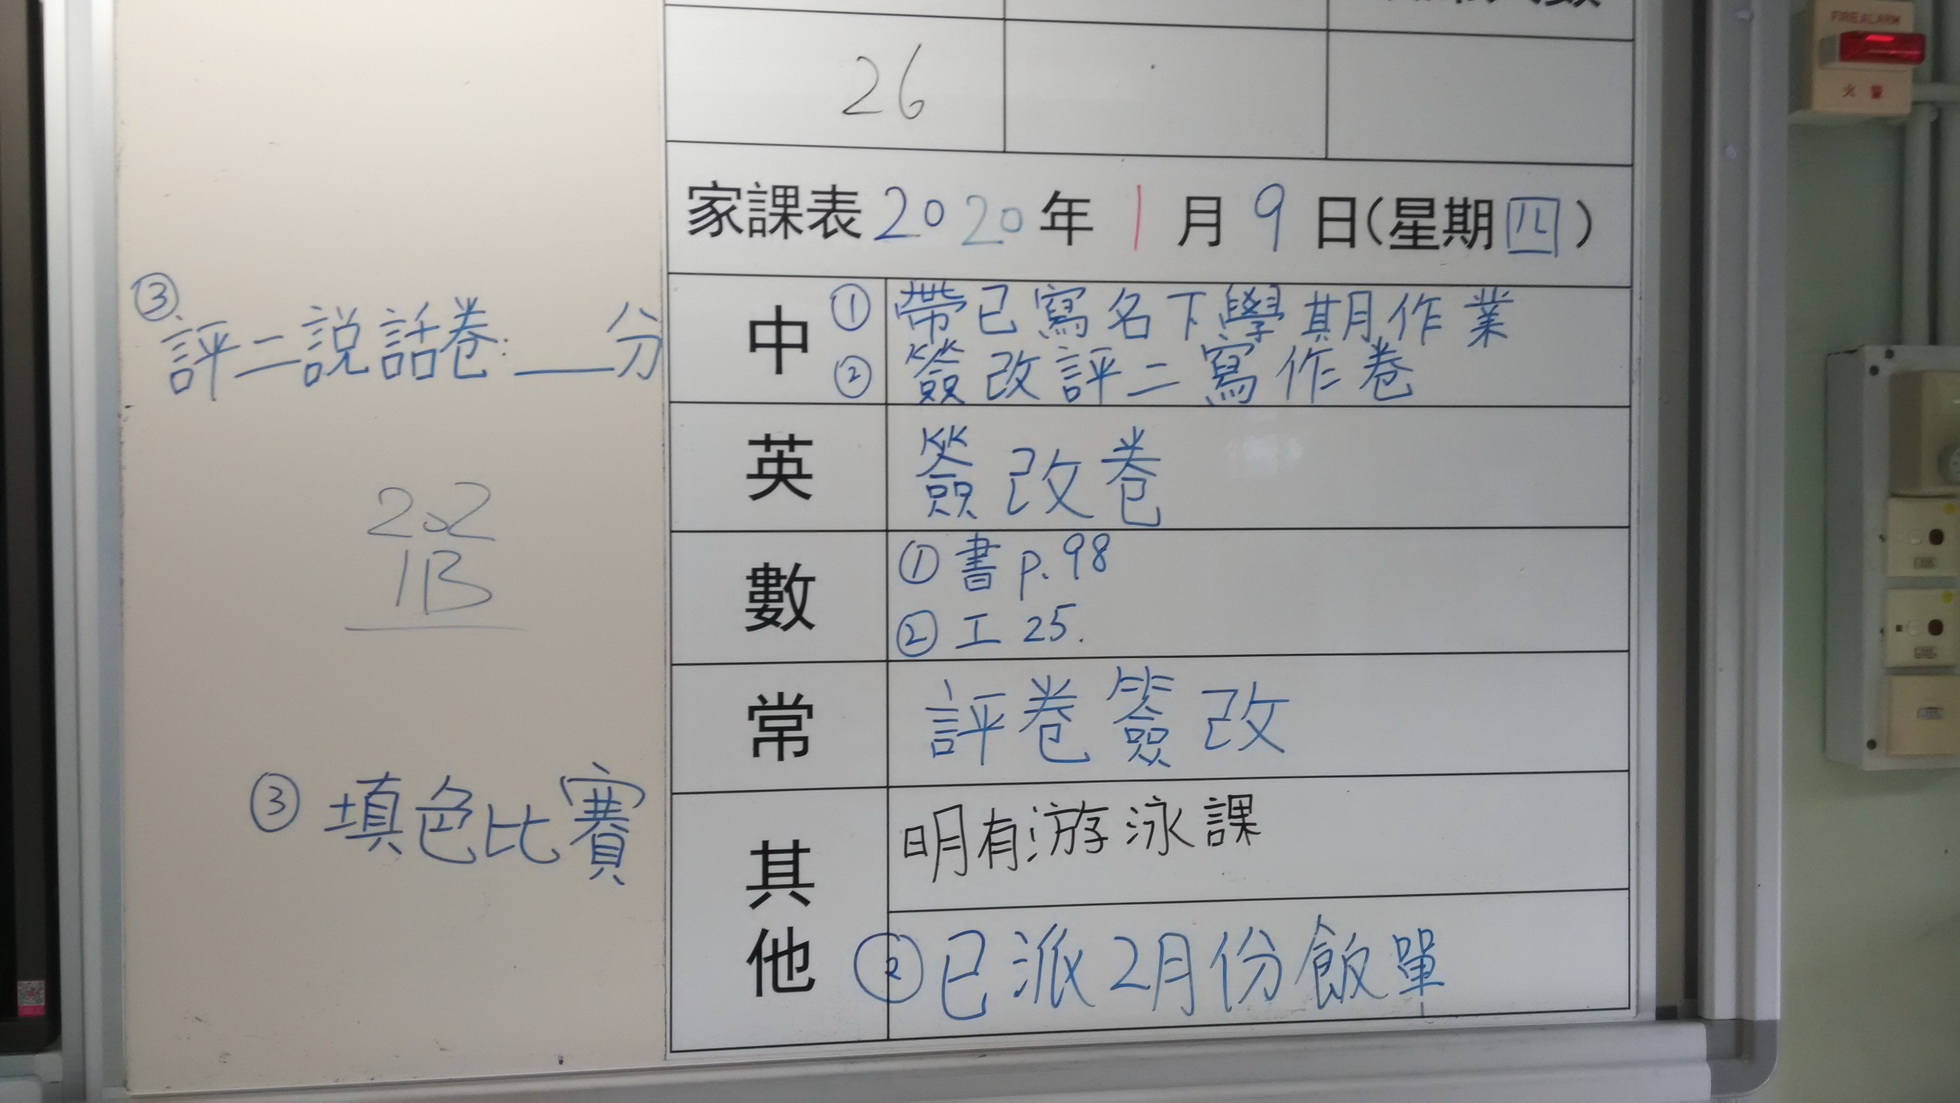 26
家課表2020年1月9日(星期四)
中
① 帶已寫名下學期作業
② 簽改評二寫作卷
③ 評二説話卷:___分
英
簽改卷
數
① 書 p.98
② 工 25.
202
1B
常
評卷簽改
其他
明有游泳課
② 已派2月份飯單
③ 填色比賽
FIRE ALARM
火警